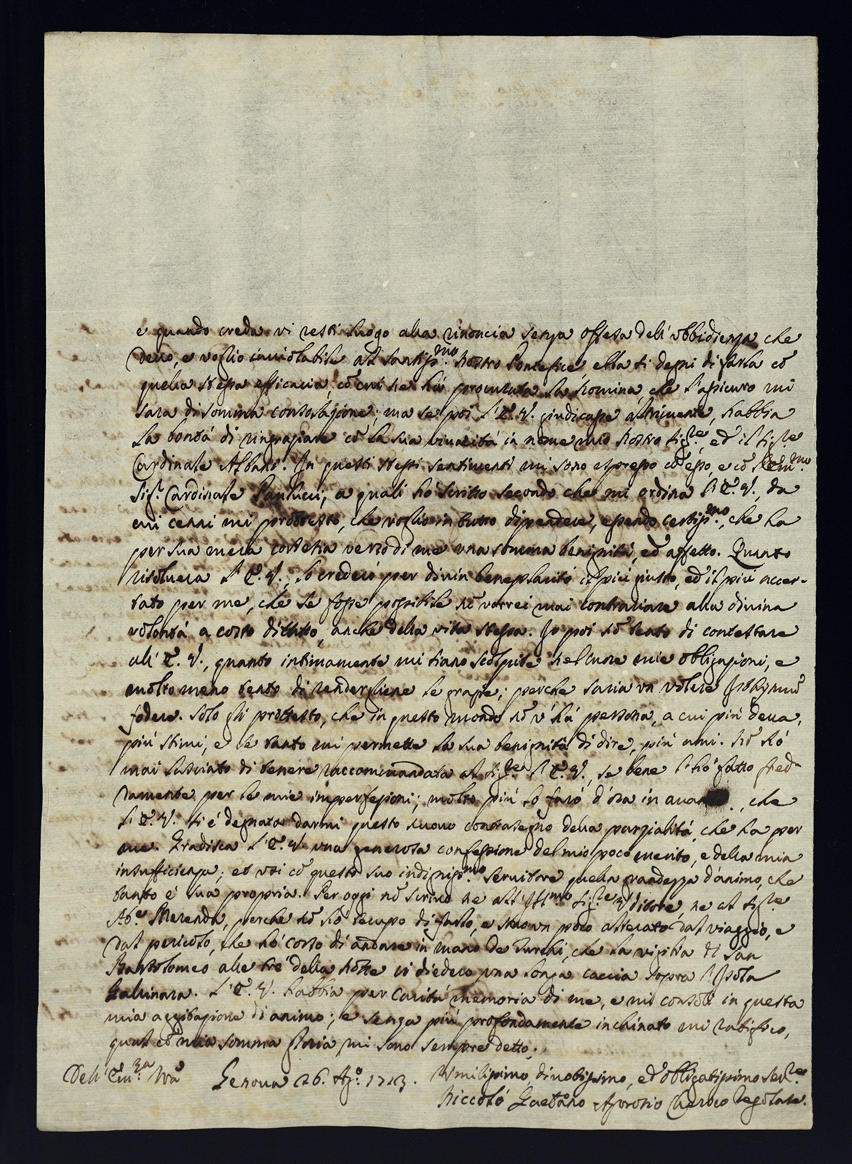 e quando creda vi resti luogo alla rinoncia senza offesa dell'ubbidienza che
devo, e voglio inviolabile al Santiss.mo nostro Pontefice ella si degni di farla cõ
quella stessa efficacia cõ cui ne hà procurata la Nomina, che l'assicuro mi
sarà di somma consolazione; ma se poi l'E. V. giudicasse altrimente, habbia
la bontà di ringraziare cõ la sua vivacità in nome mio nostro Sig.re, ed il Sig.re
Cardinale Albani. In questi stessi sentimenti mi sono espresso cõ esso, e cõ l'Em.mo
Sig.r Cardinale Paulucci, a quali hò scritto secondo che mi ordina l'E. V., da
cui cenni mi protesto, che voglio in tutto dipendere, essendo certiss.mo, che ha
per sua mera cortesia verso di me una somma benignità, ed affetto. Quanto
risolverà l'E. V., lo crederò per divin beneplacito il più giusto, ed il più accer-
tato per me, che se fosse possibile nõ vorrei mai contraviare alla divina
volontà a costo di tutto, anche della vita stessa. Io poi nõ tento di contestare
all'E. V., quanto intimamente mi siano scolpite nel cuore mie obbligazioni, e
molto meno tento di renderglene le grazie; perche saria un volere
Solo gli protesto, che in questo mondo nõ v'hà persona, a cui più deva,
più stimi, e se tanto mi permette la sua benignità di dire, più ami. Nõ hò
mai lasciato di tenere raccomandata al Sig.re l'E. V., se bene l'hò fatto fred-
damente per le mie imperfezioni; molto più lo farò d'ora in avan che
l'E. V. si è degnata darmi questo nuovo contrasegno della parzialità, che ha per
me. Gradisca l'E. V. una generosa confessione del mio poco merito, e della mia
insufficienza; et usi cõ questo suo indigniss.mo servitore quella grandezza d'animo, che
tanto è sua propria. Per oggi nõ scrivo ne all'Ill.mo Sig.re Uditore ne al Sig.re
Ab.e Merenda, perche nõ hò tempo di farlo, e sono un poco alterato dal viaggio, e
dal pericolo, che hò corso di andare in mano de Turchi, che la vigilia di San
Bartolomeo alle tre della notte ci diedero una longa caccia sopra l'Isola
Gallinara. L'E. V. habbia per carità memoria di me, e mi consoli in questa
mia agitazione di animo; e senza più profondamente inchinato mi ratifico,
qual cõ mia somma gloria mi sono sempre detto.
Dell'Em.za Vrã Genova 26. Ag.o 1713. Umilissimo, divotissimo, ed obbligatissimo Ser.re
Niccolò Gaetano Aprosio Chierico Regolare.